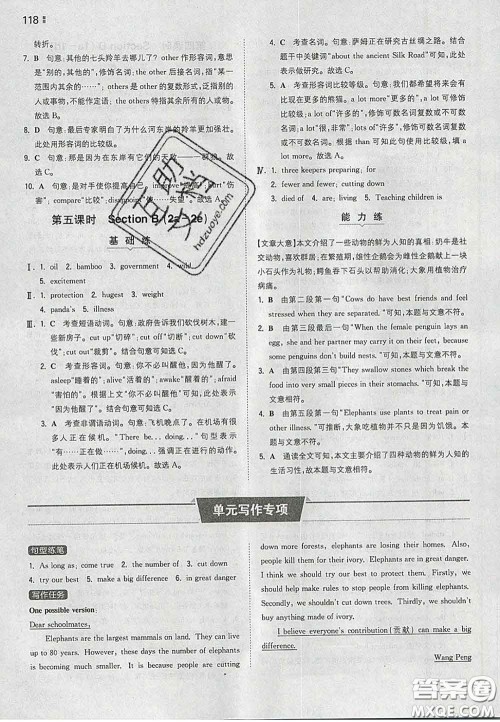 118
转折。
7. B 句意：其他的七头羚羊去哪了？other 作形容词，意思是"别的，其他的"，修饰名词；the other 后接，指"某一范围内其余的"；others 是 other 的复数形式，泛指别的人或事物，不能作定语；the others 也是代词，特指某一范围内的"其他的人或物"。故选 B。
8. B 句意：最后专家明白了为什么河东岸的羚羊更强壮。此处用形容词的比较级。故选 B。
9. C 句意：那是因为在东岸有它们的天敌——
10. A
害"；compare"比较"；
第五课时 Section B (2a－2e)
基 础 练
Ⅰ. 1. oil 2. bamboo 3. government 4. illness
5. excitement
Ⅱ. 1. protection 2. hugest 3. weight 4. importance
5. wild
Ⅲ. 1. C 考查短语动词。句意：政府告诉我们砍伐树木，建一些新房子。cut up"切碎"；cut off"切断"；cut down"砍伐"；cut out"裁剪"。结合句意可知选 C。
2. C 考查形容词。句意：你不必叫醒他，因为他醒了。asleep"睡着的"；alive"活着的"；awake"醒着的"；afraid"害怕的"。根据上文"你不必叫醒他"可知，他醒了。故选 C。
3. A 考查非谓语动词。句意：飞机晚点了。在机场有很多人正在候机。"There be... doing..."句型表示"有……正在做……"，doing 表示动作正在发生。此处表示人们正在机场候机。故选 A。
4. C 考查名词。句意：萨姆正在研究古丝绸之路。结合题干中关键词"about the ancient Silk Road"可知，此处表示做研究。故选 C。
5. A 考查形容词的比较级。句意：我希望将来我们能够看到更多的熊猫。a lot more"更多的"，a lot 可修饰比较级，意为"……得多"，many 不能修饰比较级；a lot"很，非常"；lots of"许多"，修饰可数名词复数或不可数名词；a lot of"许多"，修饰可数名词复数或不可数名词。故选 A。
Ⅳ. 1. three keepers preparing; for
2. fewer and fewer; cutting down
3. are; in; danger 4. died; living 5. Teaching children is
能 力 练
【文章大意】本文介绍了一些动物的鲜为人知的真相：奶牛是社交动物，喜欢群居；在繁殖期，雄性企鹅会为雌性企鹅献上一枚小石头作为礼物；鳄鱼吞下石头以帮助消化；大象用植物治疗病痛。
1. A 由第二段第一句"Cows do have best friends and feel stressed when they are separated."可知，本题与文意相符。
2. B 由第三段最后一句"When the female penguin lays an egg, she and her partner may carry on with the process because some penguins don't build nests."可知，本题与文意不符。
3. B 由第四段第三句"These small stones which break the food into very small pieces in their stomachs."可知，本题与文意不符。
4. B 由第五段第一句"Elephants use plants to treat pain or other illness."可推断，大象吃植物并不只是因为它们饥饿。故本题与文意不符。
5. A 通读全文可知，本文介绍了四种动物的鲜为人知的生活习性，故本题与文意相符。
单元写作专项
句型练笔
1. As long as; come true 2. the number of 3. cut down
4. try our best 5. make a big difference 6. in great danger
写作任务
One possible version:
Dear schoolmates,
Elephants are the largest mammals on land. They can live up to 80 years. However, these days the number of elephants is becoming smaller and smaller. It is because people are cutting
down more forests, elephants are losing their homes. Also, people kill elephants for their ivory. Elephants are in great danger. I think we should try our best to protect them. Firstly, we should help elephants live better and stop killing elephants. Secondly, we shouldn't cut down trees. Thirdly, we shouldn't buy anything made of ivory.
I believe everyone's contribution (贡献) can make a big difference.
Wang Peng
作业互助
hdzuoye.com
答案圈
MXQE.COM